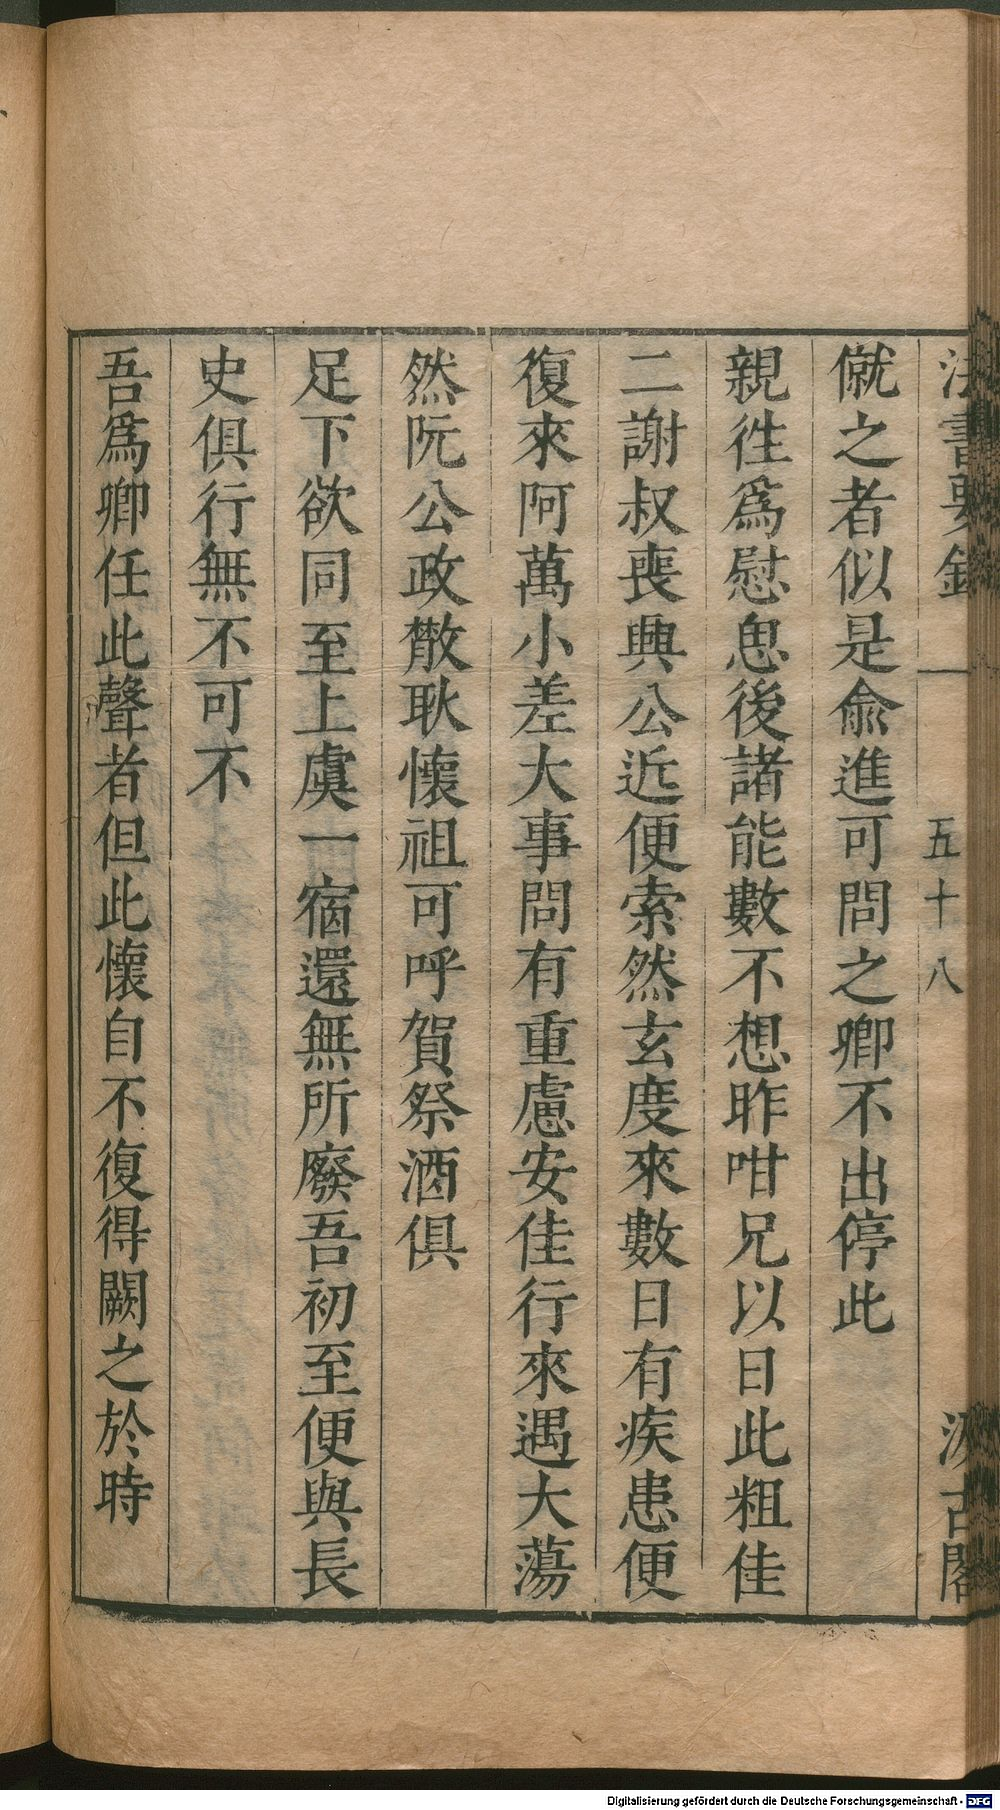 法書要錄 一 五十八 汲古閣
僦之者似是俞進可問之卿不出停此
親徃爲慰思後諸能數不想昨咁兄以日此粗佳
二謝叔喪興公近便索然玄度來數日有疾患便
復來阿萬小差大事問有重慮安佳行來遇大蕩
然阮公政散耿懷祖可呼賀祭酒俱
足下欲同至上虞一宿還無所廢吾初至便與長
史俱行無不可不
吾爲卿任此聲者但此懷自不復得闕之於時
Digitalisierung gefördert durch die Deutsche Forschungsgemeinschaft - DFG